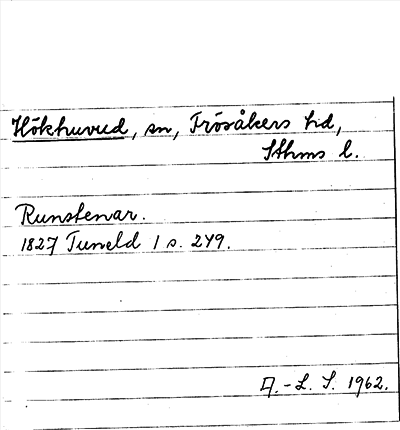 Hökhuvud, sn, Frösåkers hd,
Sthms l.
Runstenar.
1827 Tuneld 1 s. 249.
A.-L. S. 1962.